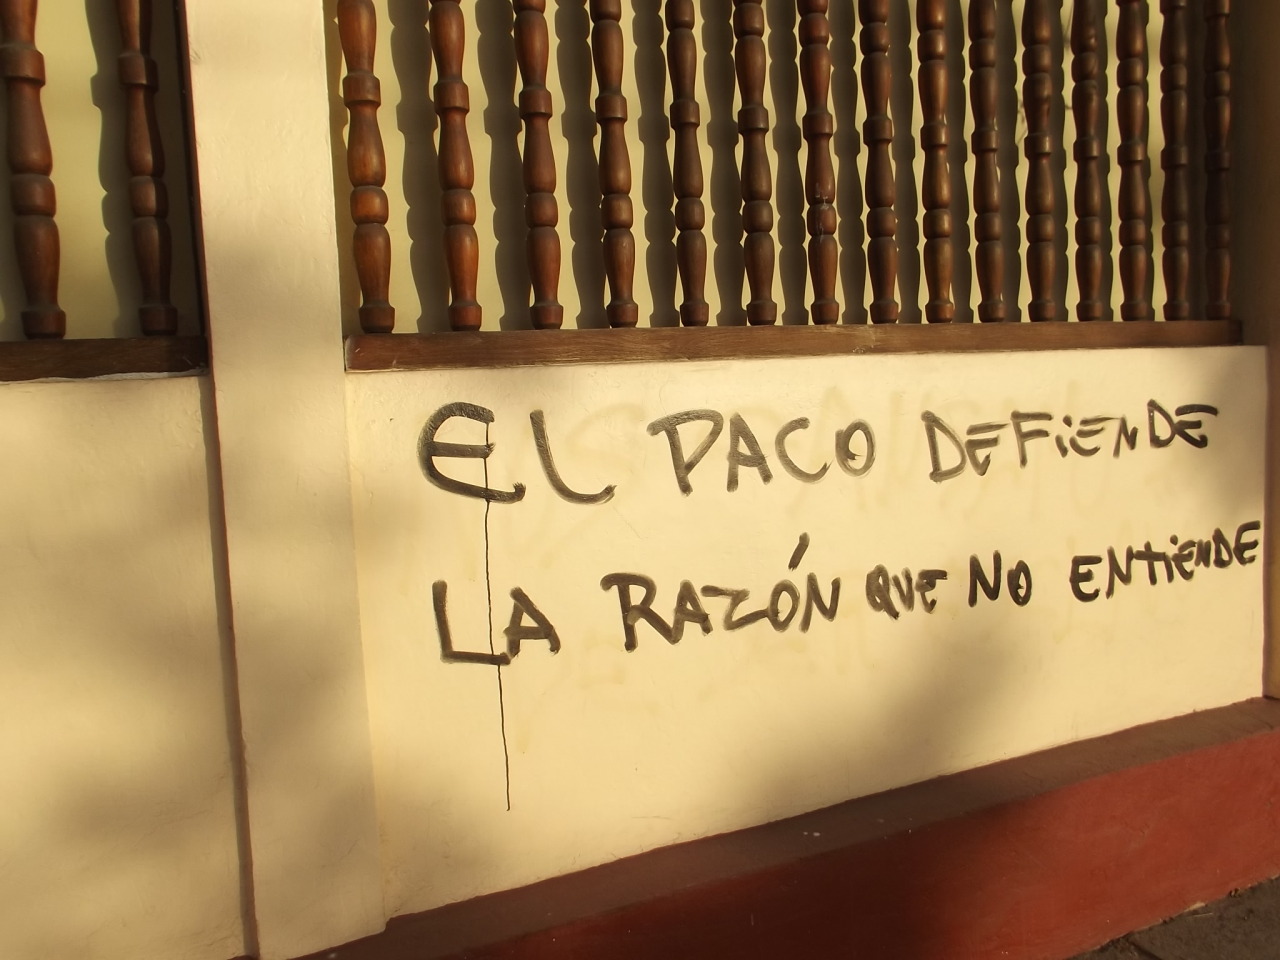 EL PACO DEFiENDE
LA RAZÓN QUE NO ENTiENDE